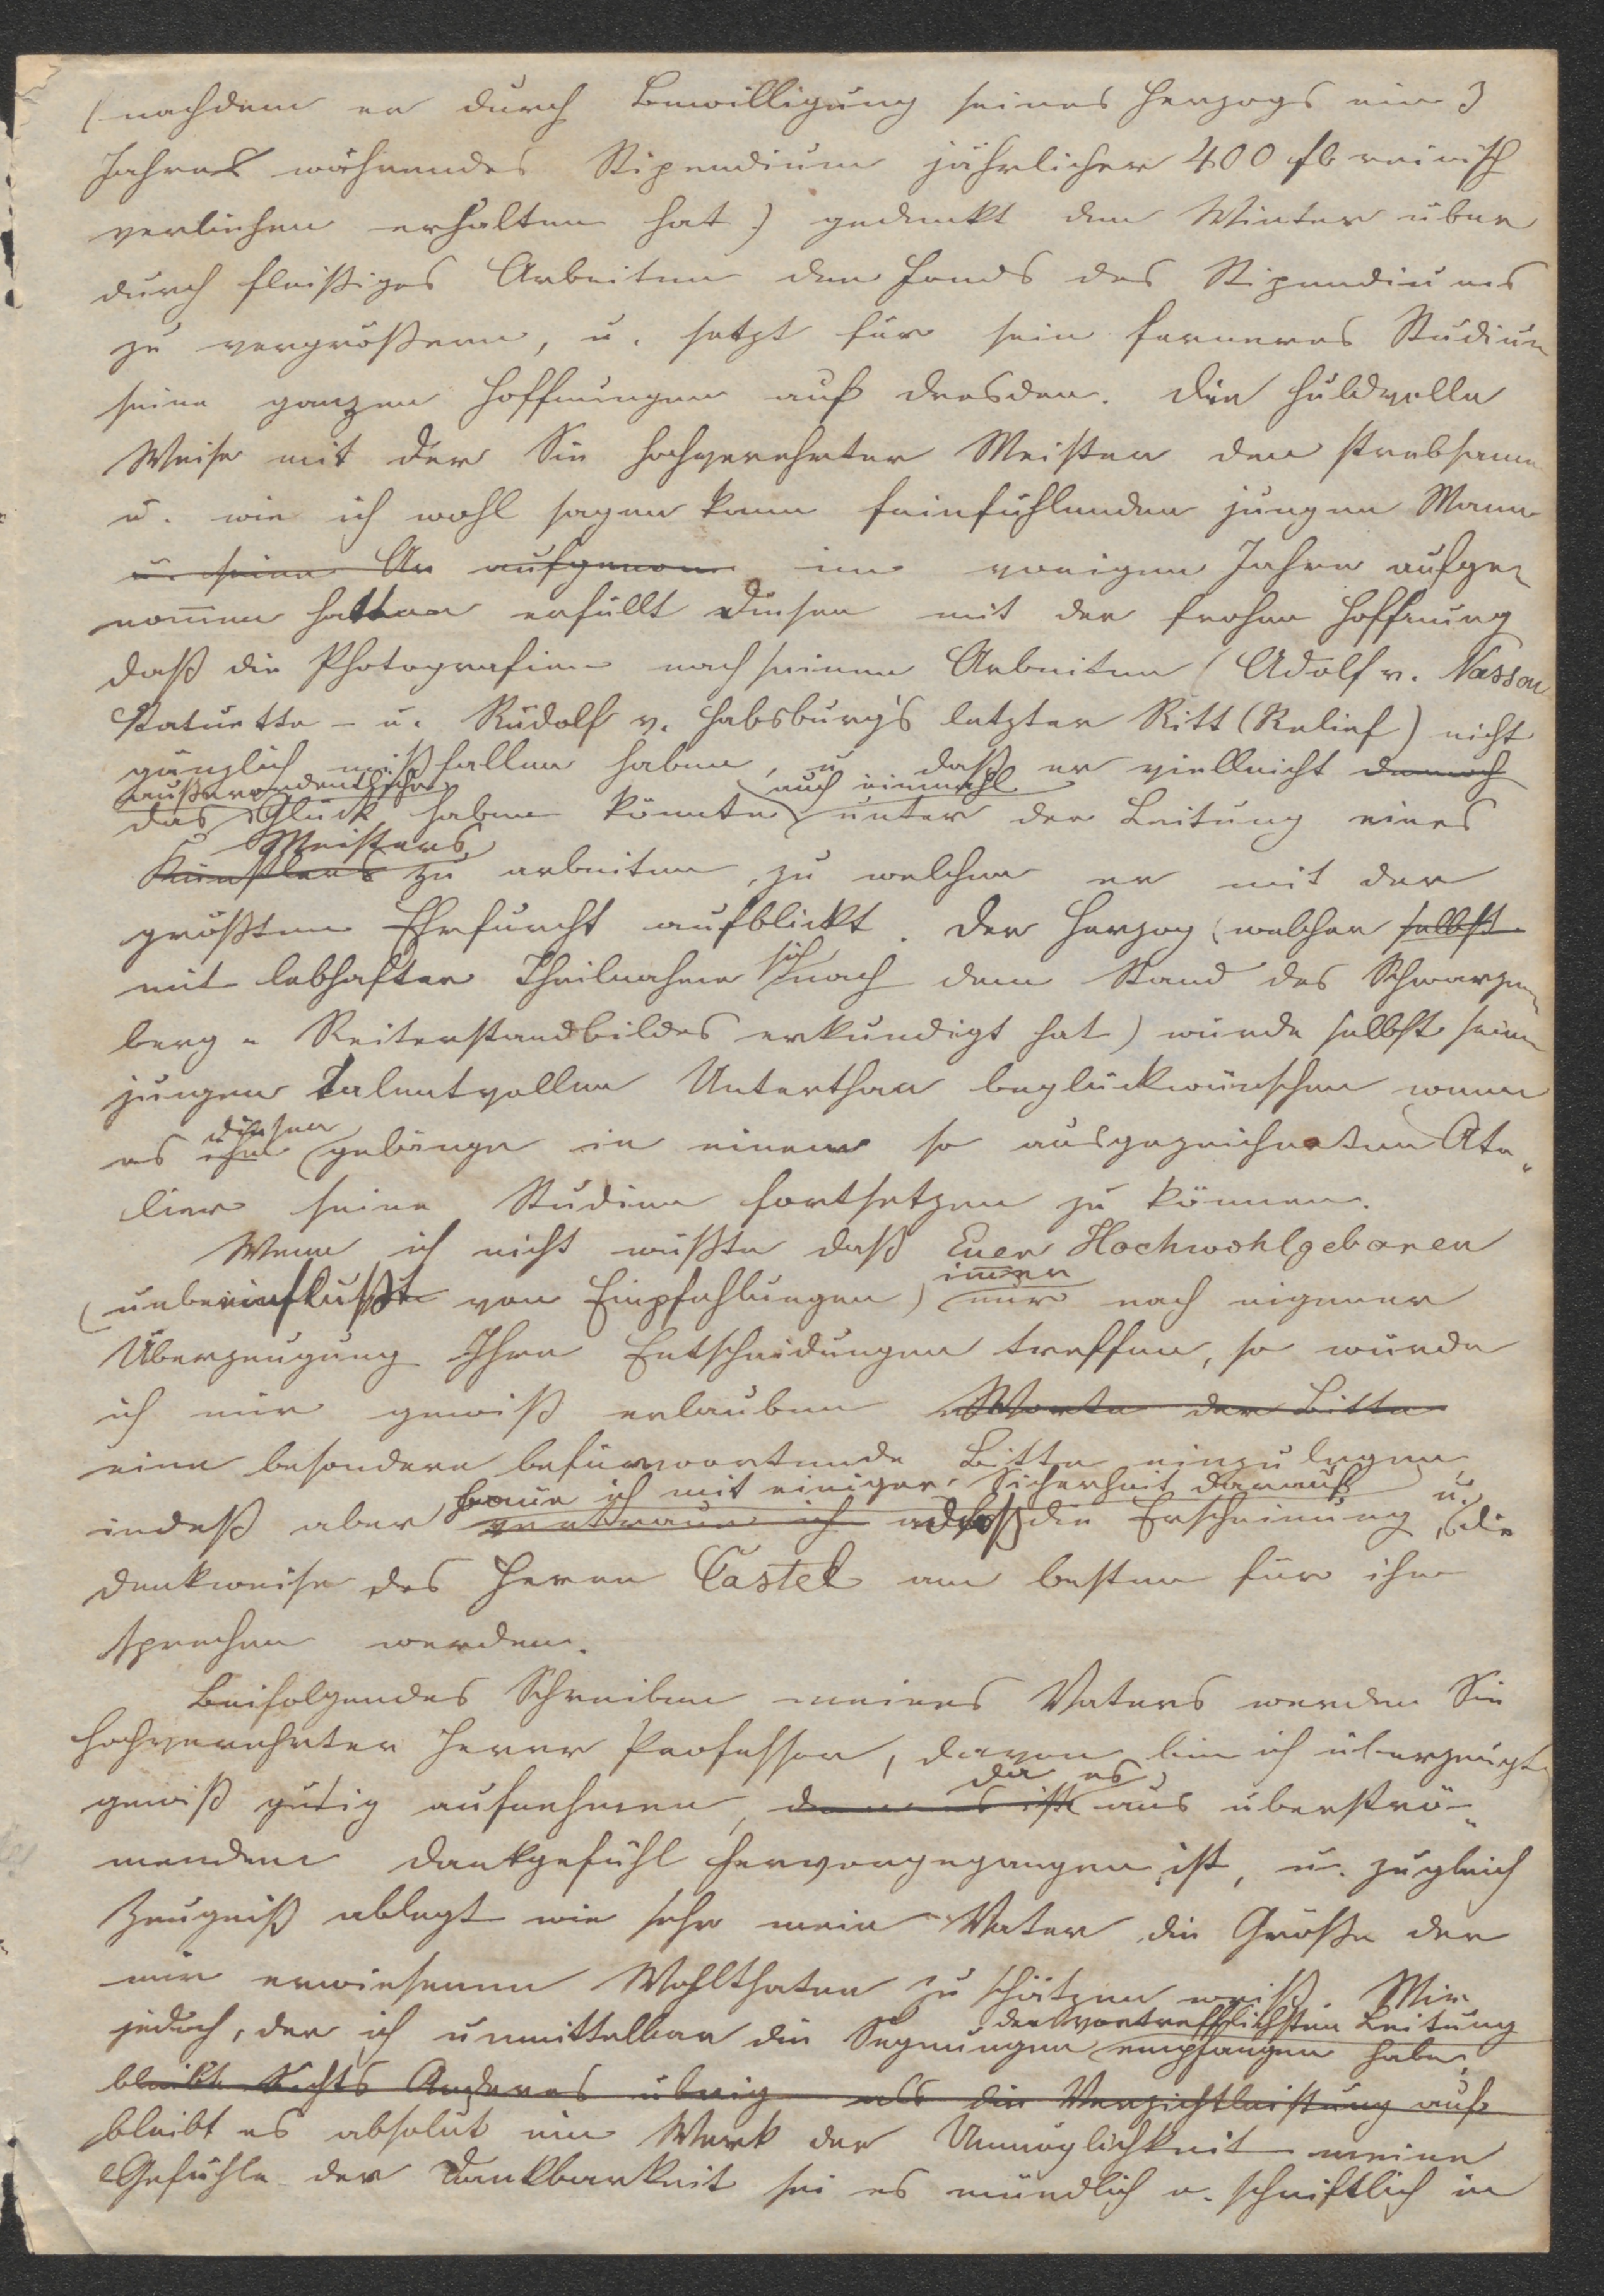 (nachdem er durch Bewilligung seines Herzogs ein 3
Jahre währendes Stipendium jährlicher 400 fl reinisch
verliehen erhalten hat) gedenkt den Winter über
durch fleißiges Arbeiten den Fonds des Stipendiums
zu vergrößern, u. setzt für sein ferneres Studium
seine ganzen Hoffnungen auf Dresden. Die huldvolle
Weise mit der Sie hochverehrter Meister den strebsamen
u. wie ich wohl sagen kann feinfühlenden jungen Mann
u. seine Ar aufgenom im vorigen Jahre aufge-
nom̄en hatten erfüllt diesen mit der frohen Hoffnung
daß die Photografien nach seinen Arbeiten (Adolf v. Nassau
Statuette - u. Rudolf v. Habsburg's letzter Ritt (Relief) nicht
gänzlich mißfallen haben, u. daß er vielleicht dennoch
außerordentliche auch einmahl
das Glück haben könnte unter der Leitung eines
Meisters
Künstlers zu arbeiten, zu welchem er mit der
größten Ehrfurcht aufblickt. Der Herzog (welcher selbst
sich
mit lebhafter Theilnahme nach dem Stand des Schwarzen-
berg-Reiterstandbildes erkundigt hat) würde selbst seinen
jungen talentvollen Unterthan beglückwünschen wenn
diesen
es ihm gelänge in einem so ausgezeichneten Ate-
lier seine Studien fortsetzen zu können.
Wenn ich nicht wüßte daß Euer Hochwohlgeboren
im̄er
(unbeeinflußt von Empfehlungen) nur nach eigener
Überzeugung Ihre Entscheidungen treffen, so würde
ich mir gewiß erlauben Worte der Bitte
eine besondere befürwortende Bitte einzulegen,
baue ich mit einiger Sicherheit darauf u.
indeß aber vertraue ich daß die Erscheinung, die
Denkweise des Herrn Castel am besten für ihn
sprechen werden.
Beifolgendes Schreiben meines Vaters werden Sie
hochverehrter Herr Professor, davon bin ich überzeugt
da es
gewiß gütig aufnehmen, denn es ist aus überströ-
mendem Dankgefühl hervorgegangen ist, u. zugleich
Zeugniß ablegt wie sehr mein Vater die Größe der
mir erwiesenen Wohlthaten zu schätzen weiß. Mir
der vortrefflichsten Leitung
jedoch, der ich unmittelbar die Segnungen empfangen habe,
bleibt Nichts Anderes übrig als die Verzichtleistung auf
bleibt es absolut ein Werk der Unmöglichkeit meine
Gefühle der Dankbarkeit sei es mündlich o. schriftlich in